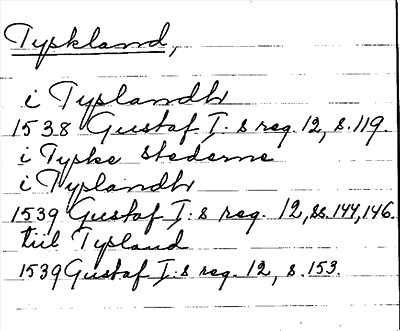 Tyskland,
i Typlandh
1538 Gustaf I:s reg. 12, s. 119.
i Tyske stederne
i Typlandh
1539 Gustaf I:s reg. 12, ss. 144, 146.
till Typland
1539 Gustaf I:s reg. 12, s. 153.